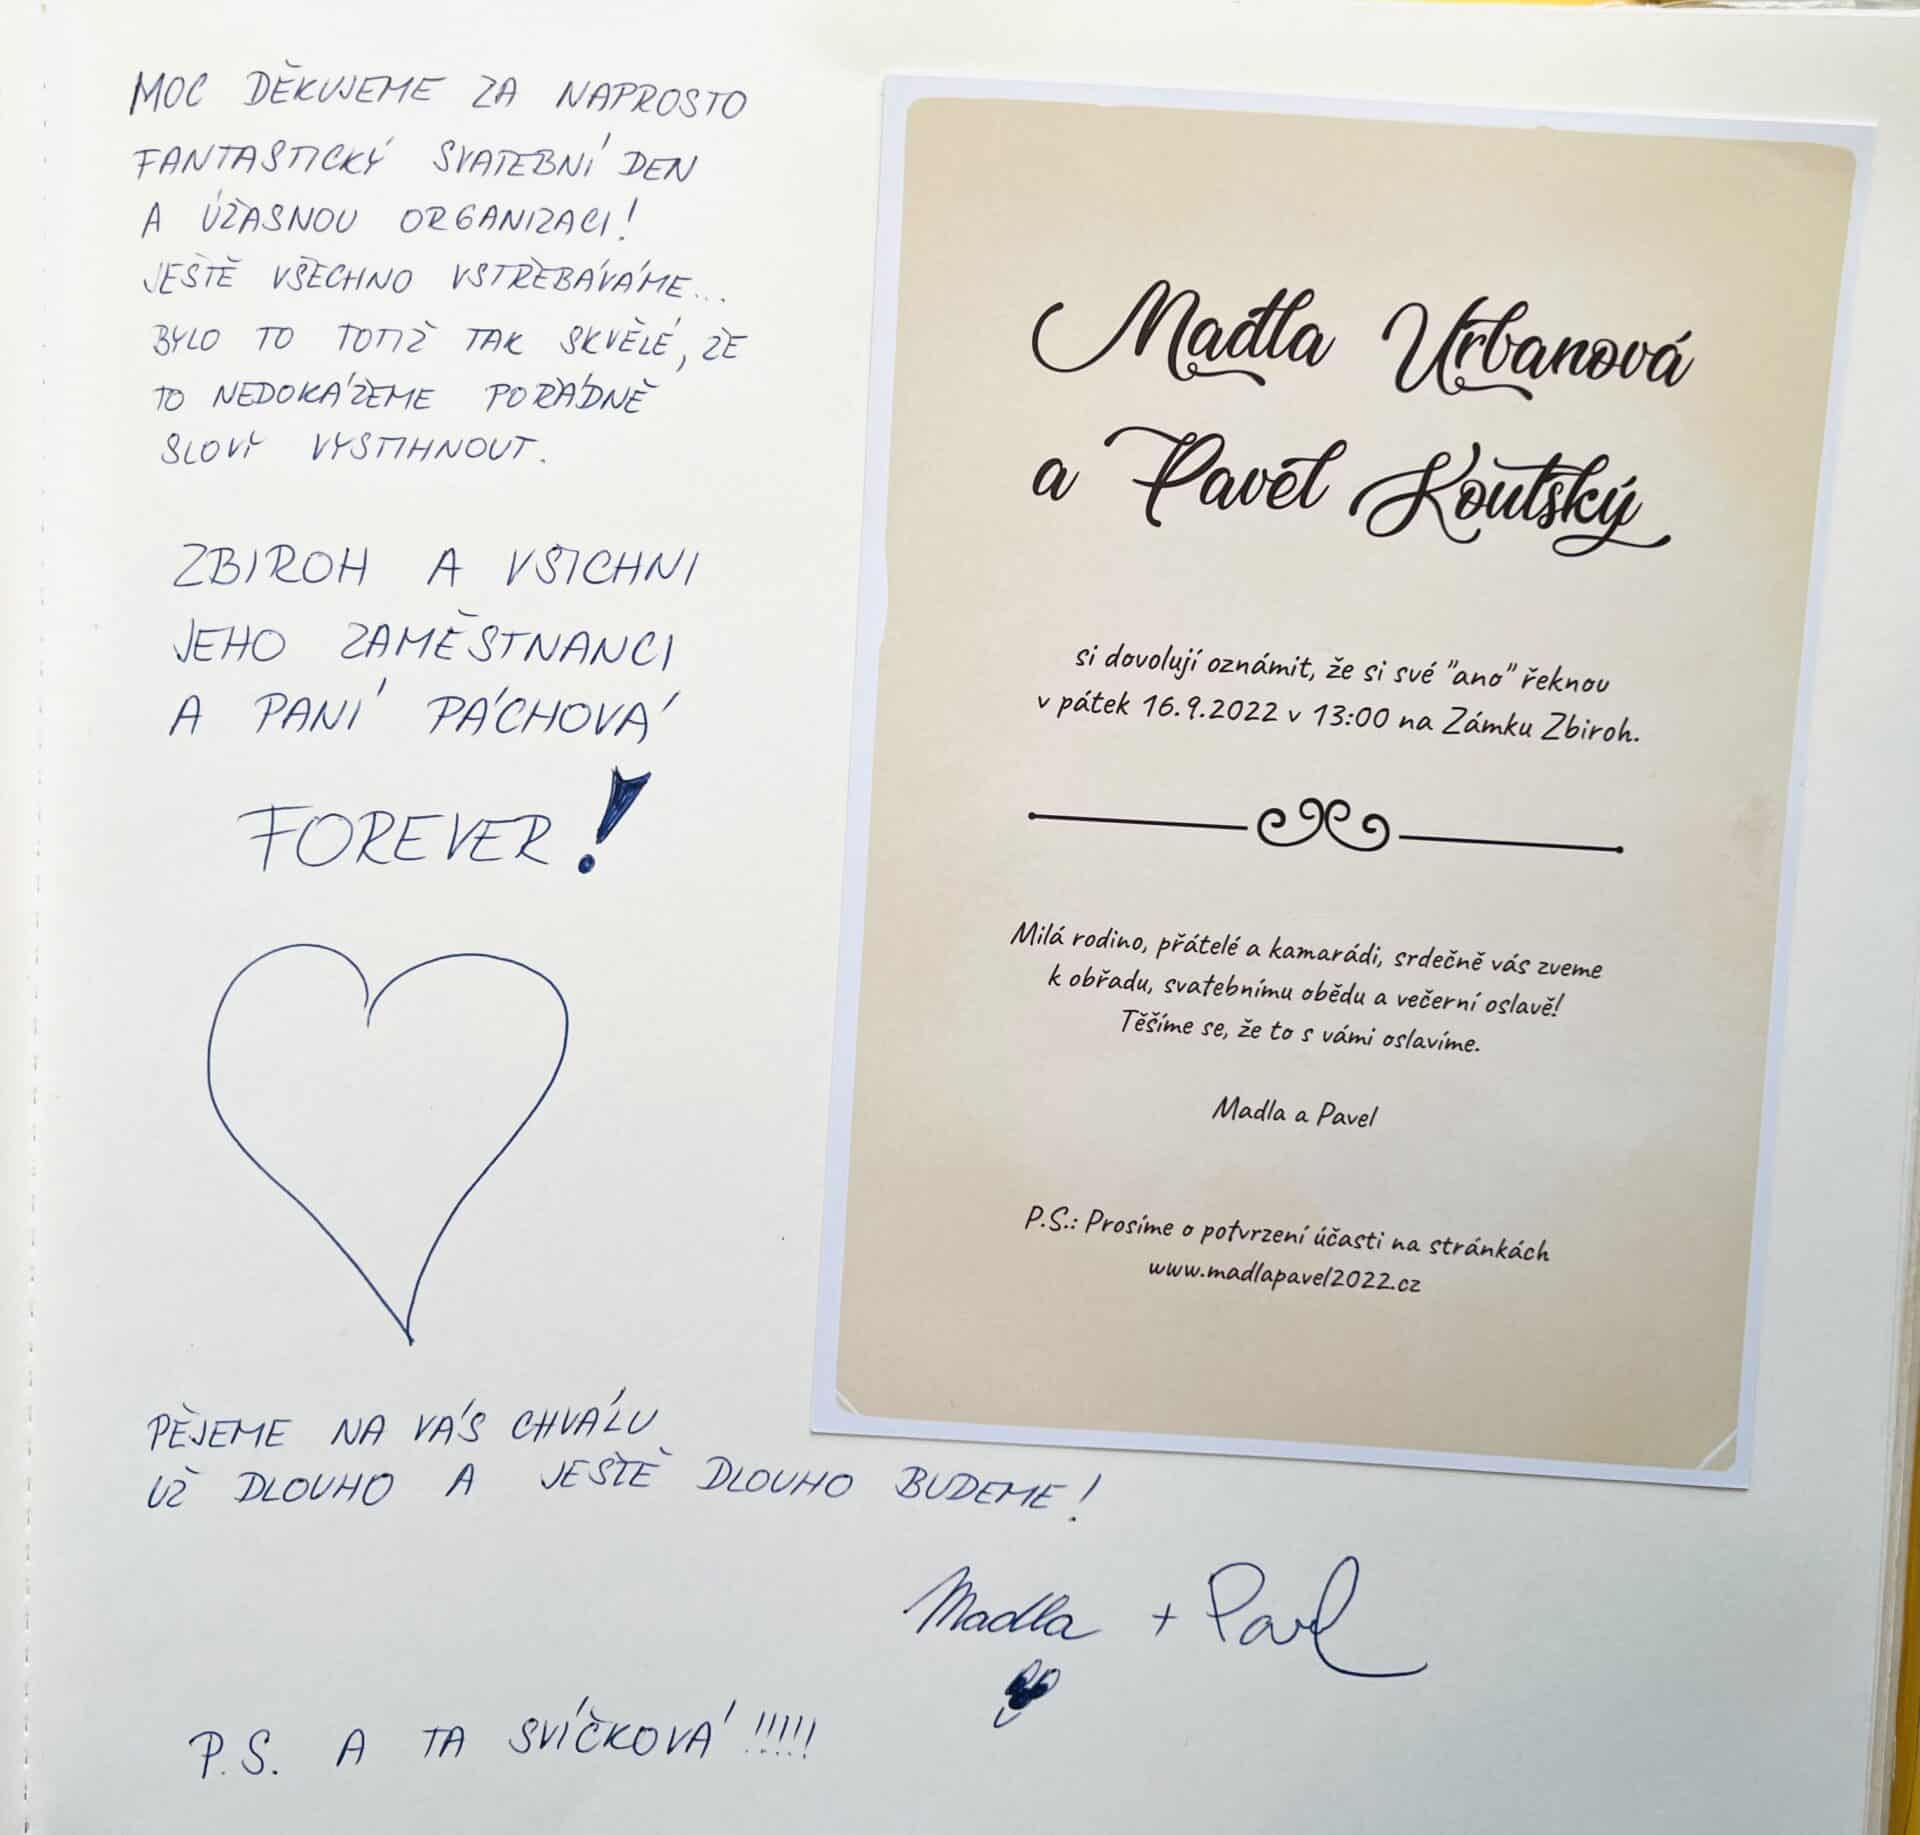 MOC DĚKUJEME ZA NAPROSTO
FANTASTICKÝ SVATEBNÍ DEN
A ÚŽASNOU ORGANIZACI!
JEŠTĚ VŠECHNO VSTŘEBÁVÁME...
BYLO TO TOTIŽ TAK SKVĚLÉ, ŽE
TO NEDOKÁŽEME POŘÁDNĚ
SLOVY VYSTIHNOUT.
ZBIROH A VŠICHNI
JEHO ZAMĚSTNANCI
A PANÍ PÁCHOVÁ
FOREVER!
PĚJEME NA VÁS CHVÁLU
UŽ DLOUHO A JEŠTĚ DLOUHO BUDEME!
Madla + Pavel
P.S. A TA SVÍČKOVÁ !!!!!
Madla Urbanová
a Pavel Koutský
si dovolují oznámit, že si své "ano" řeknou
v pátek 16.9.2022 v 13:00 na Zámku Zbiroh.
Milá rodino, přátelé a kamarádi, srdečně vás zveme
k obřadu, svatebnímu obědu a večerní oslavě!
Těšíme se, že to s vámi oslavíme.
Madla a Pavel
P.S.: Prosíme o potvrzení účasti na stránkách
www.madlapavel2022.cz